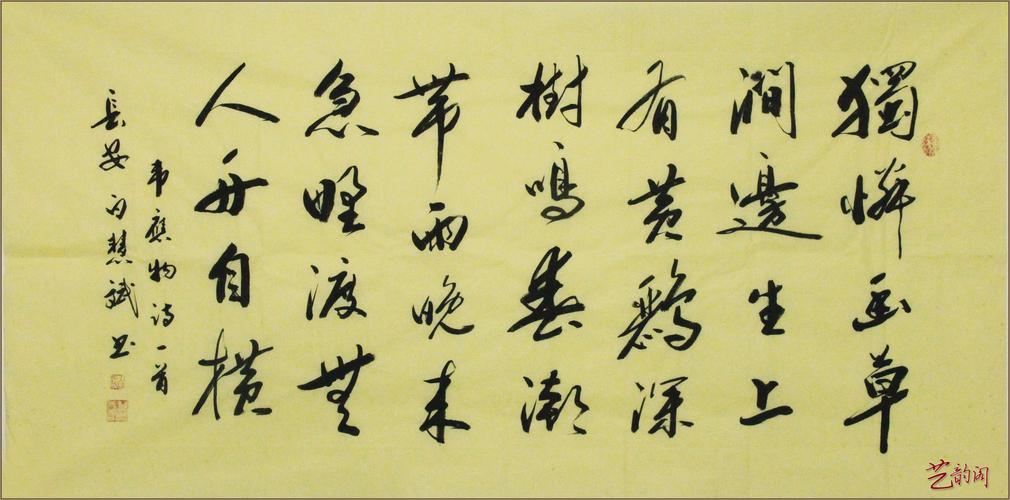 獨憐幽草
澗邊生上
有黄鸝深
樹鳴春潮
帶雨晚来
急野渡無
人舟自横
韦應物诗一首
長安白慧斌书
艺韵阁